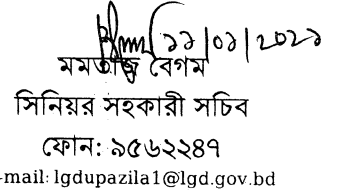 ১১/০১/২০২১
মমতাজ বেগম
সিনিয়র সহকারী সচিব
ফোন: ৯৫৬২২৪৭
-mail: lgdupazila1@lgd.gov.bd